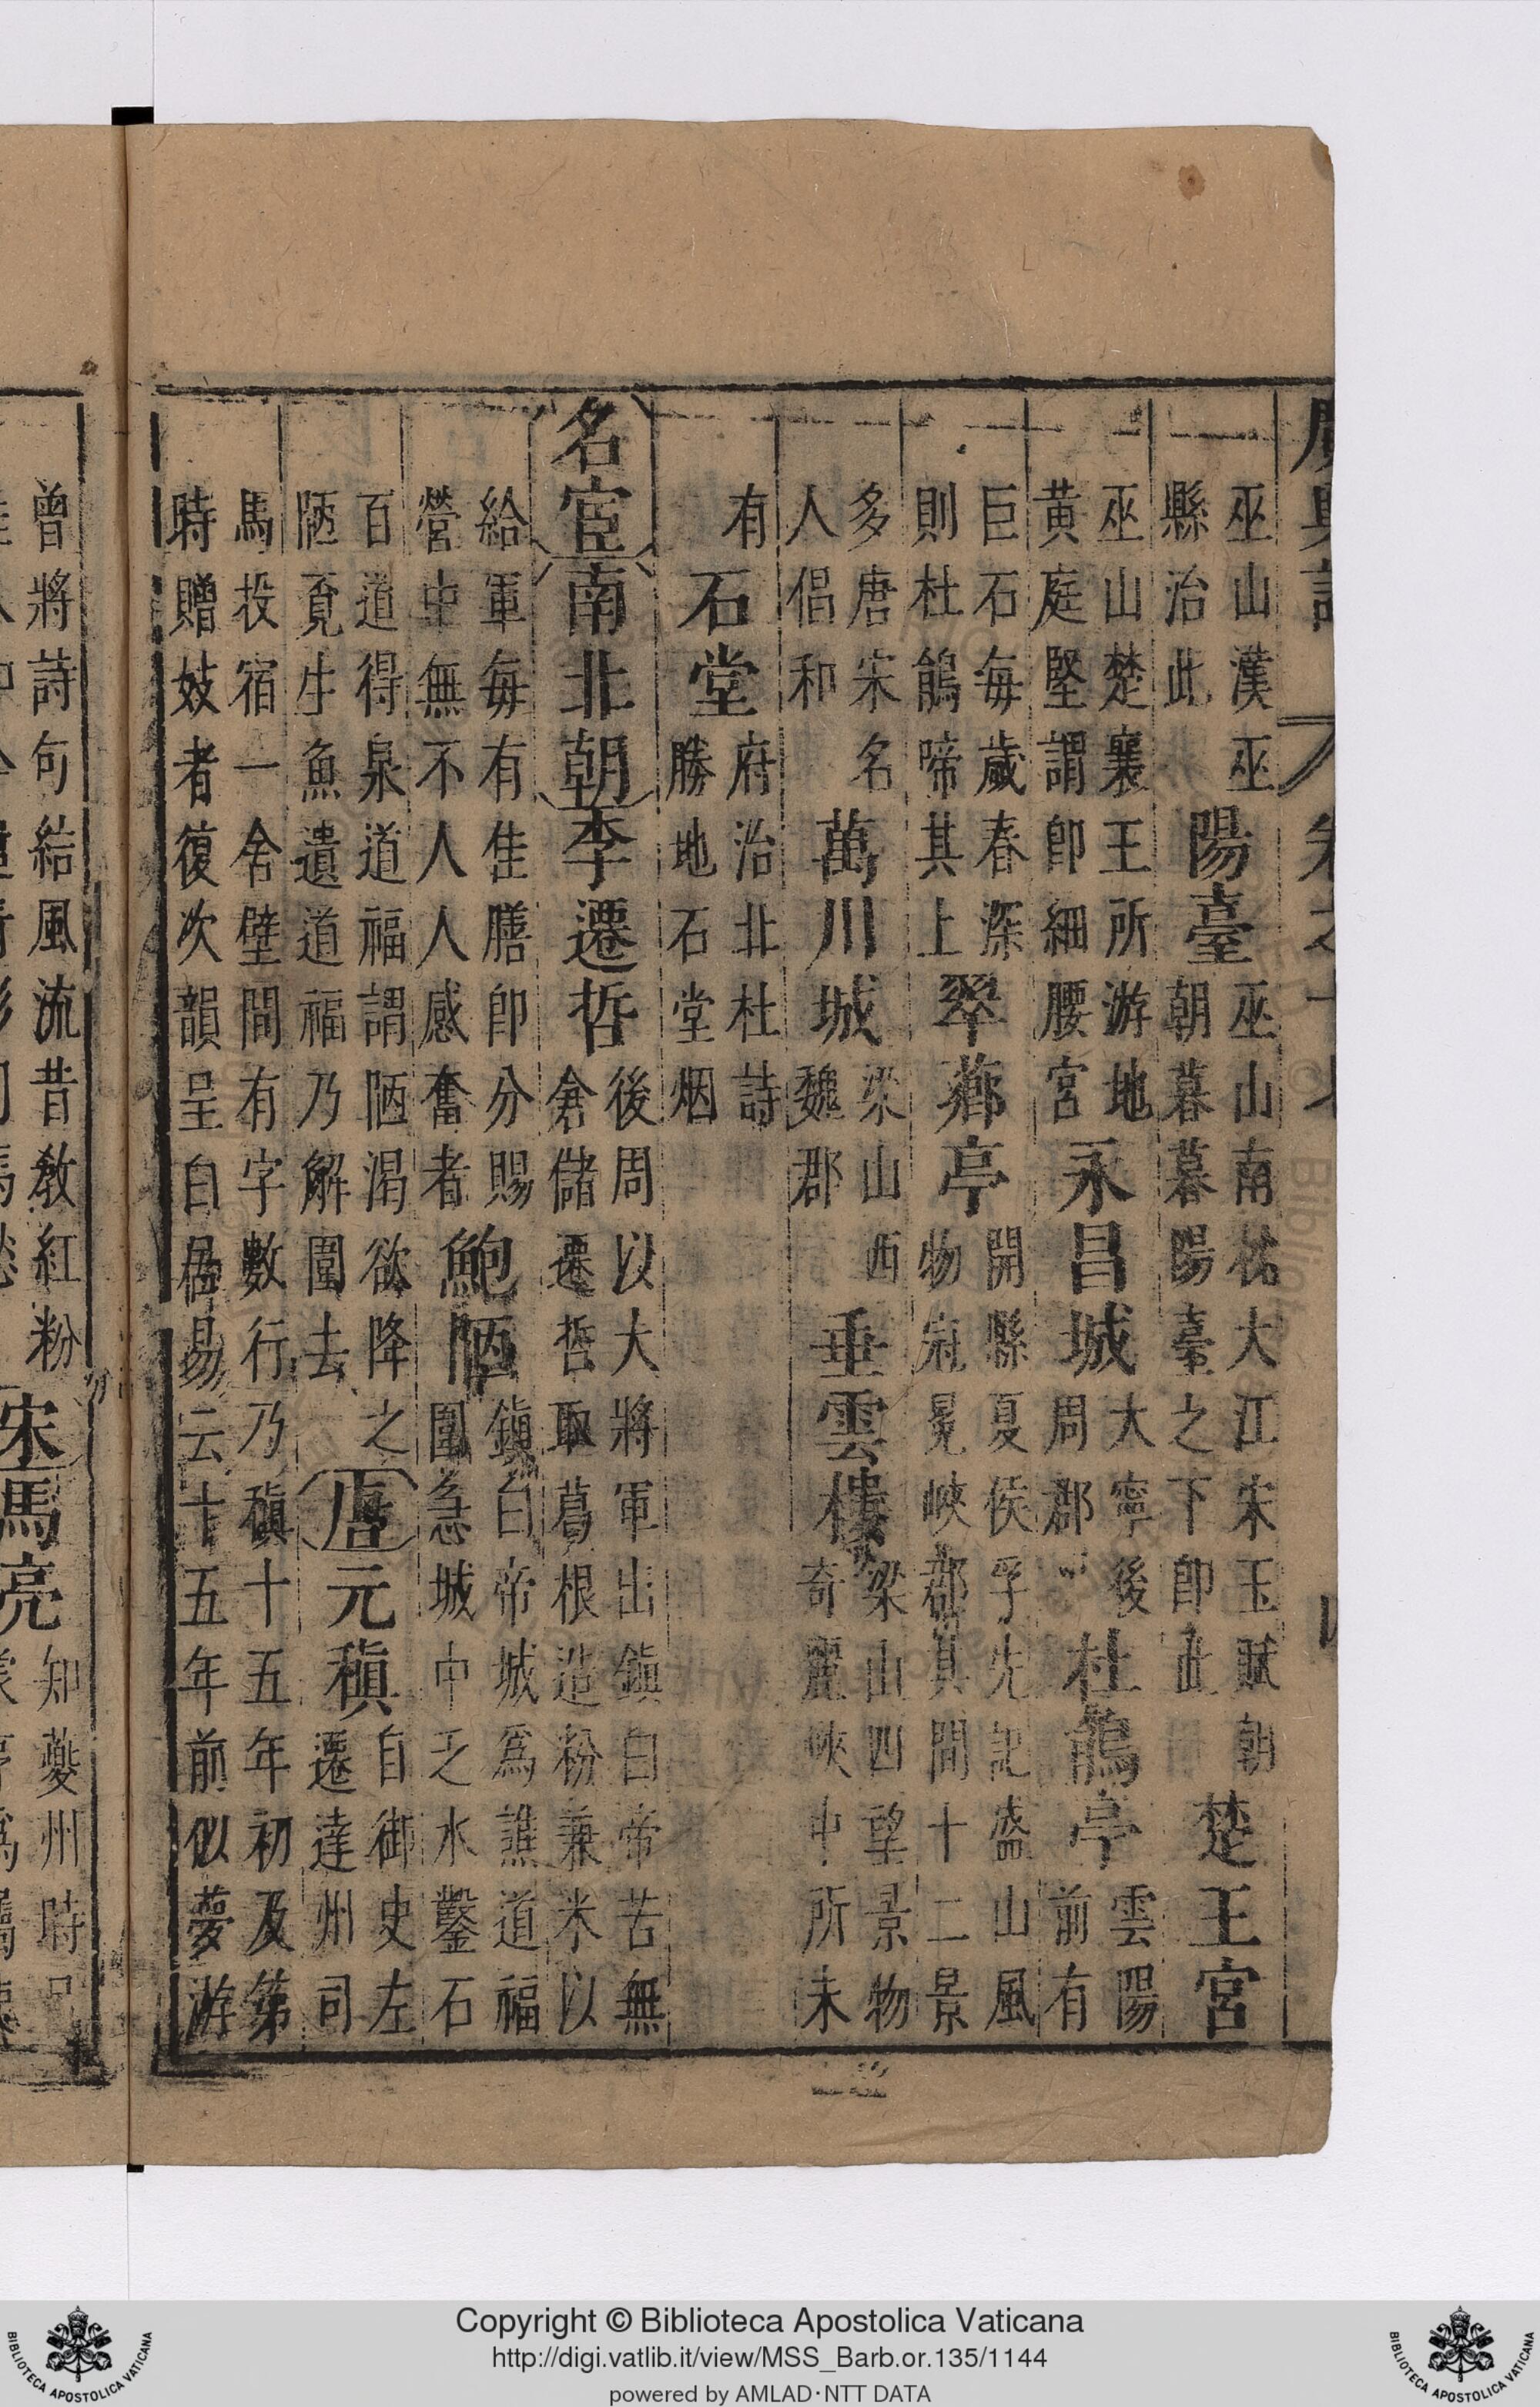 巫山漢巫
縣治此
陽臺
巫山南枕大江宋玉賦朝
朝暮暮陽臺之下即此
楚王宮
巫山楚襄王所游地
黃庭堅謂即細腰宮
永昌城
大寧後
周郡
杜鵑亭
雲陽
前有
巨石每歲春深
則杜鵑啼其上
翠薌亭
開縣夏侯孚先記盛山風
物冠冕峽郡其間十二景
多唐宋名
人倡和
萬川城
梁山西
魏郡
垂雲樓
梁山四望景物
奇麗峽中所未
有
石堂
府治北杜詩
勝地石堂烟
名宦
南北朝
李遷哲
後周以大將軍出鎮白帝苦無
倉儲遷哲取葛根造粉兼米以
給軍每有佳膳即分賜
營中無不人人感奮者
鮑陋
鎮白帝城為譙道福
圍急城中乏水鑿石
百道得泉道福謂陋渴欲降之
陋覓生魚遺道福乃解圍去
唐
元稹
自御史左
遷達州司
馬投宿一舍壁間有字數行乃稹十五年初及第
時贈妓者復次韻呈白居易云十五年前似夢游
曾將詩句結風流昔教紅粉
宋
馬亮
知夔州時
Copyright © Biblioteca Apostolica Vaticana
http://digi.vatlib.it/view/MSS_Barb.or.135/1144
powered by AMLAD·NTT DATA
BIBLIOTECA APOSTOLICA VATICANA
BIBLIOTECA APOSTOLICA VATICANA